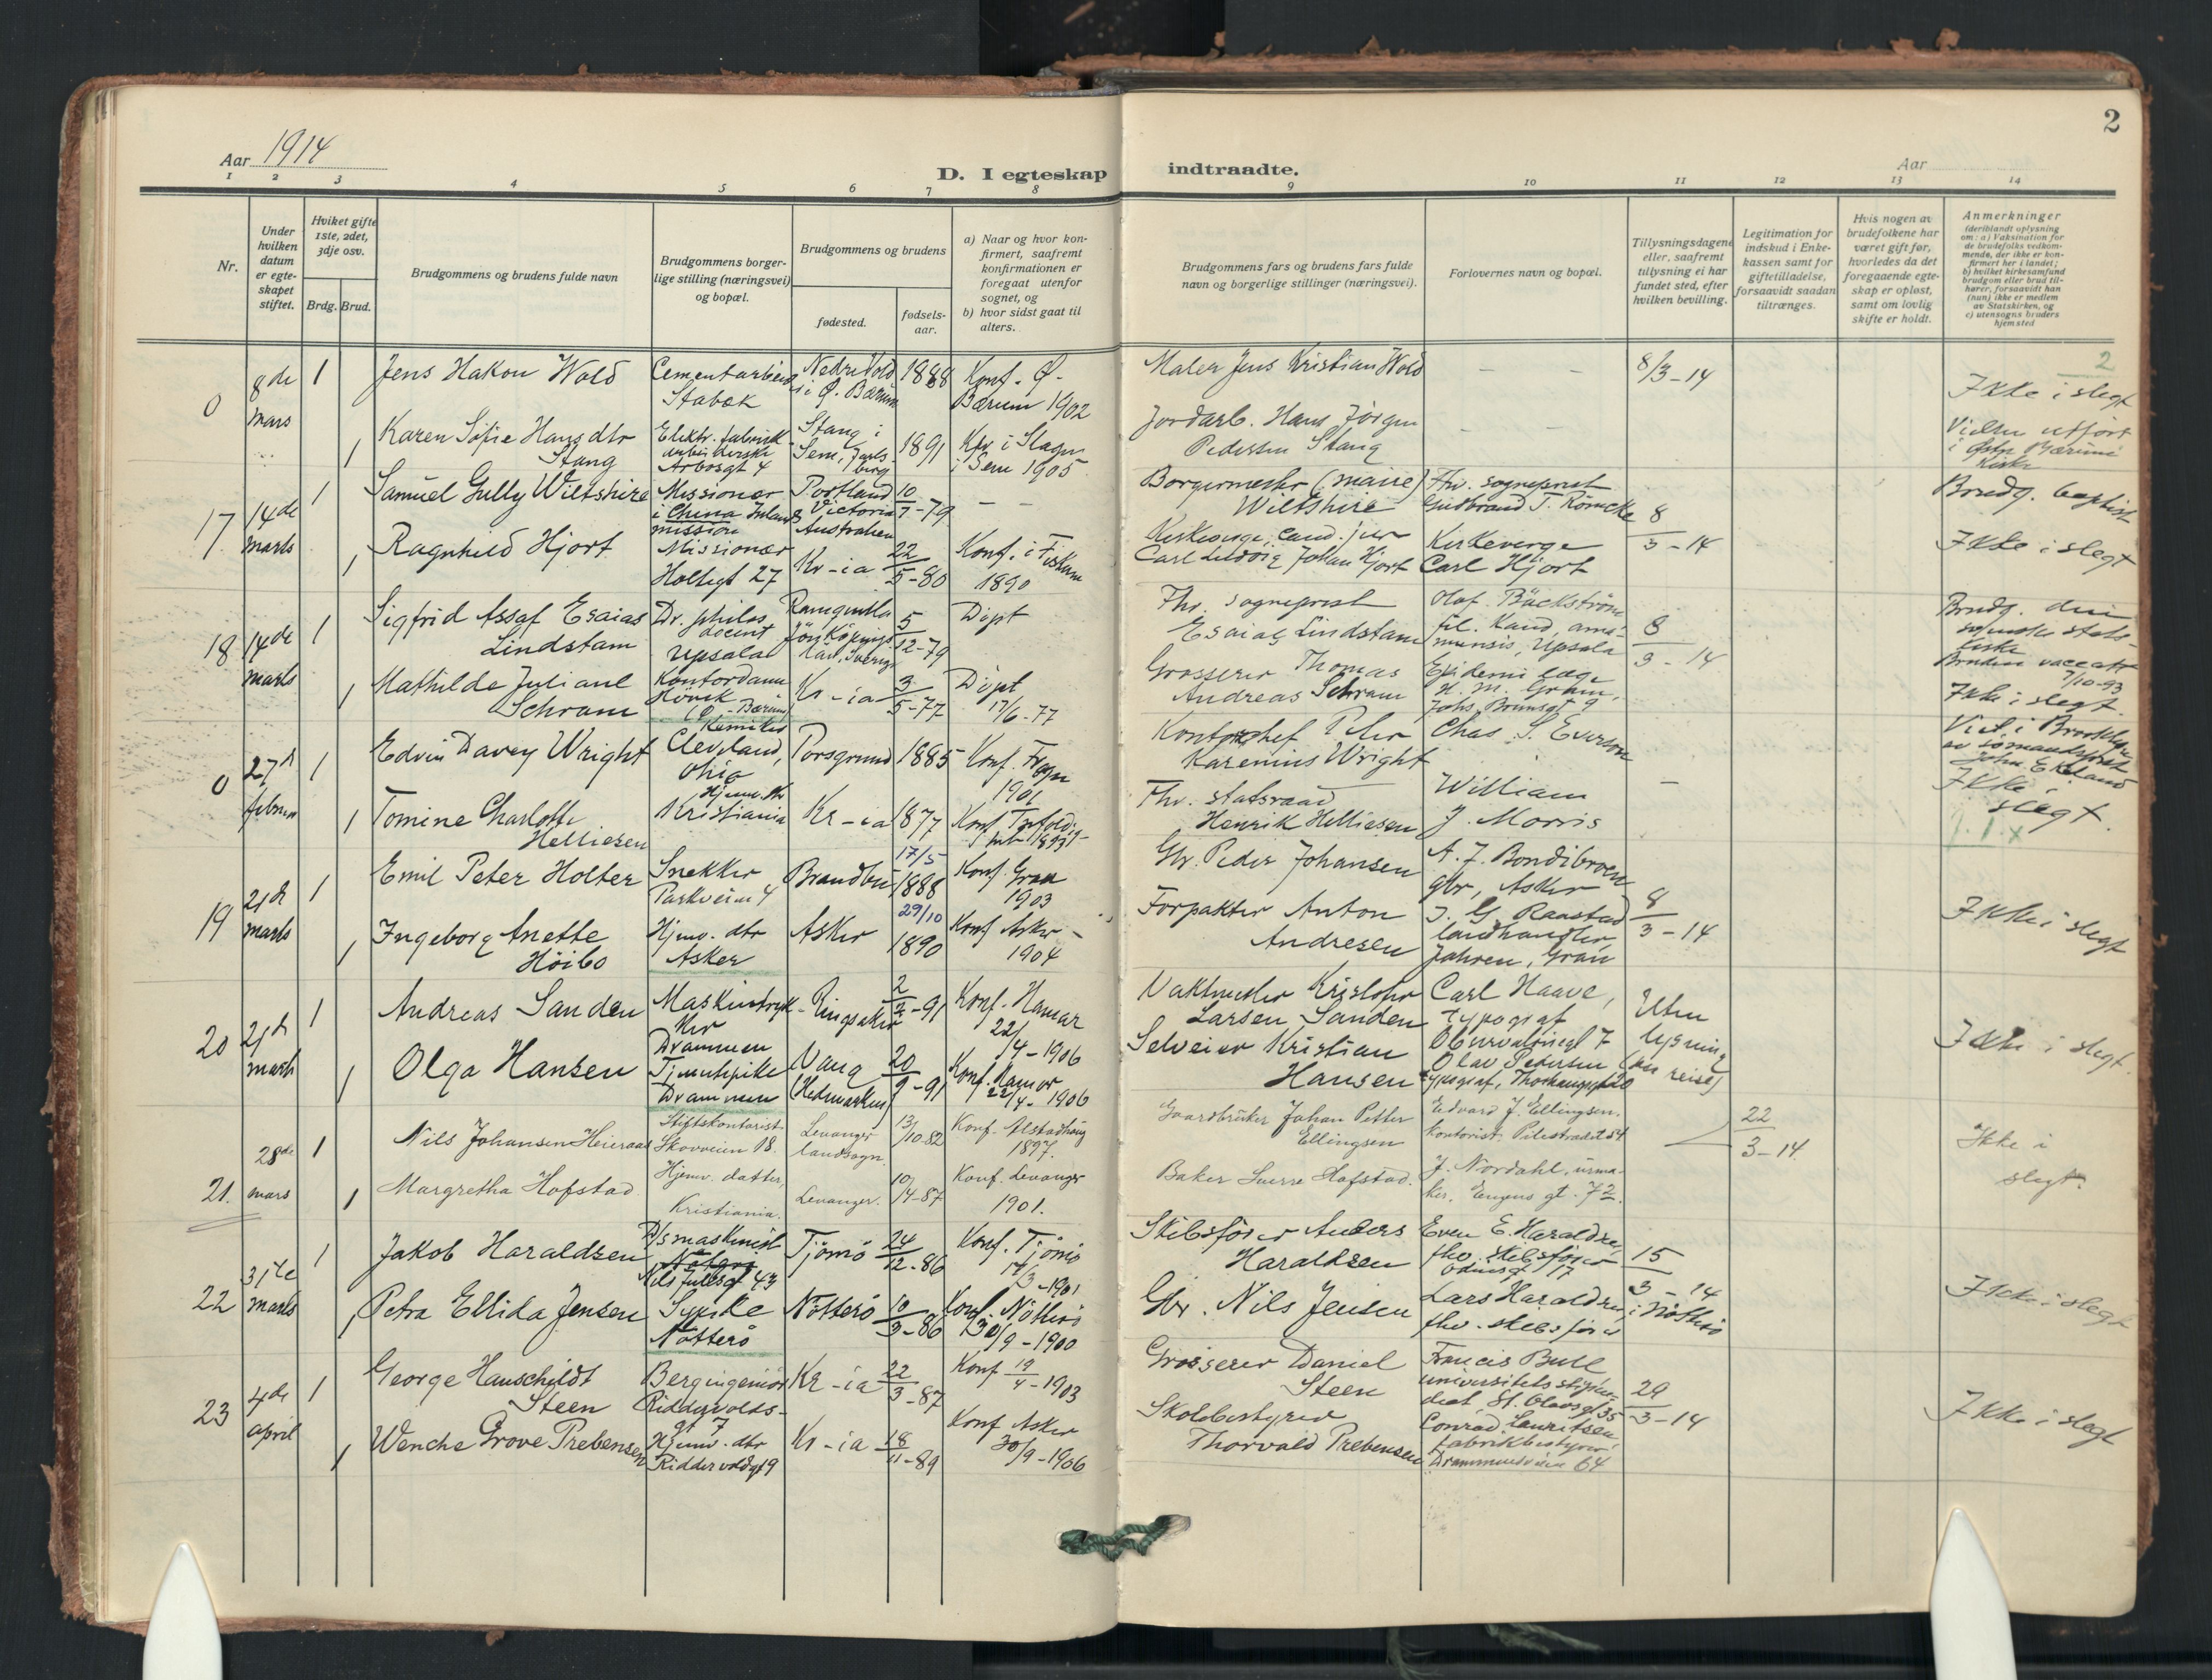 2
Aar 1914
D. I egteskap indtraadte.
Aar
1 2 3 4 5 6 7 8 9 10 11 12 13 14
Nr.
Under hvilken datum er egteskapet stiftet.
Hviket gifte 1ste, 2det, 3dje osv.
Brdg. Brud.
Brudgommens og brudens fulde navn
Brudgommens borgerlige stilling (næringsvei) og bopæl.
Brudgommens og brudens
fødested.
fødselsaar.
a) Naar og hvor konfirmert, saafremt konfirmationen er foregaat utenfor sognet, og
b) hvor sidst gaat til alters.
Brudgommens fars og brudens fars fulde navn og borgerlige stillinger (næringsvei).
Forlovernes navn og bopæl.
Tillysningsdagene eller, saafremt tillysning ei har fundet sted, efter hvilken bevilling.
Legitimation for indskud i Enkekassen samt for giftetilladelse, forsaavidt saadan tiltrænges.
Hvis nogen av brudefolkene har været gift før, hvorledes da det foregaaende egteskap er opløst, samt om lovlig skifte er holdt.
Anmerkninger (deriblandt oplysning om: a) Vaksination for de brudefolks vedkommende, der ikke er konfirmert her i landet; b) hvilket kirkesamfund brudgom eller brud tilhører, forsaavidt han (hun) ikke er medlem av Statskirken, og c) utensogns bruders hjemsted
2
0
8de
Mars
1
Jens Hakon Wold
Cementarbeid
Stabæk
Nedre Vold
i Ø. Bærum
1888
Konf. Ø.
Bærum 1902
Maler Jens Kristian Wold
– –
8/3-14
Ikke i slegt
1
Karen Sofie Hansdtr
Stang
Elektr. fabrik
arbeiderske
Arbosgt 4
Stang i
Sem, Jarlsberg
1891
Kfr. i Slagn
i Sem 1905
Jordarb. Hans Jörgen
Pedersen Stang
– –
Vielsen utført
i Østre Bærums
Kirke
17
14de
marts
1
Samuel Gully Wiltshire
Missionær
i China Inland
mission
Portland
Victoria
Australien
10/7-79
– –
Borgermester (maire)
Wiltshire
Fhv. sogneprest
Gudbrand T. Römcke
8/3-14
Brudg. baptist
1
Ragnhild Hjort
Missionær
Holtegt 27
Kr-ia
22/5-80
Konf. i Fiskum
1890
Kirkeverge, cand. jur
Carl Ludvig Johan Hjort
Kirkeverge
Carl Hjort
Ikke i slegt
18
14de
marts
1
Sigfrid Assaf Esaias
Lindstam
Dr. philos
docent
Upsala
Ramqvilla
Jönköpings
län, Sverig
5/12-79
Döpt
Fhv. sogneprest
Esaias Lindstam
Olof Bäckström
fil. kand, amanuensis, Upsala
8/3-14
Brudg. den
svenske statskirke
1
Mathilde Juliane
Schram
Kontordame
Hövik
(Ø-Bærum)
Kr-ia
3/5-77
Döpt
17/6-77
Grosserer Thomas
Andreas Schram
Epidemilæge
H. M. Gram,
Johs Brunsgt 9
Bruden vaccert
7/10-93
Ikke i slegt.
0
27d
februar
1
Edvin Davey Wright
Kemiker
Cleveland,
Ohio
Porsgrund
1885
Konf. Frogn
1901
Kontorchef Peter
Karenius Wright
Chas. S. Everson
–
Viet i Brooklyn
av sömandsprest
John Ekeland
1
Tomine Charlotte
Helliesen
Hjemv. dtr
Kristiania
Kr-ia
1877
Konf. Trefoldig-
1893
Fhv. statsraad
Henrik Helliesen
William
J. Morris
Ikke i
slegt.
19
21de
marts
1
Emil Peter Holter
Snekker
Parkveien 4
Brandbu
17/5
1888
Konf. Gran
1903
Gbr. Peder Johansen
A. J. Bondibroen
gbr, Asker
8/3-14
Ikke i slegt
1
Ingeborg Anette
Höibo
Hjemv. dtr
Asker
Asker
29/10
1890
Konf Asker
1904
Forpakter Anton
Andresen
J. G. Raastad
landhandler,
Jahren, Gran
20
21d
marts
1
Andreas Sanden
Maskintrykker
Drammen
Ringsaker
2/2-91
Konf. Hamar
22/4-1906
Vaktmester Kristofer
Larsen Sanden
Carl Haave,
typograf
Observatoriegt 7
Uten
lysning
(paa reise)
Ikke i slegt.
1
Olga Hansen
Tjenestepike
Drammen
Vang
(Hedmarken)
20/9-91
Konf. Hamar
22/4-1906
Selveier Kristian
Hansen
Olav Pedersen
typograf, Thorhaugsgt 20
21.
28de
mars
1
Nils Johansen Heieraas
Stiftskontorist
Skovveien 18.
Levanger
landsogn.
13/10-82
Konf. Alstadhaug
1897.
Gaardbruker Johan Petter
Ellingsen
Edvard J. Ellingsen.
kontorist. Pilestrædet 54
22/3-14.
Ikke i
slegt.
1
Margretha Hofstad
Hjemv. datter,
Kristiania.
Levanger.
10/4-87
Konf. Levanger
1901.
Baker Sverre Hofstad.
J. Nordahl, urmaker, Eugens gt. 72.
22
31te
marts
1
Jakob Haraldsen
D/s maskinist
Nils Juelsgt 43
Tjömö
24/12-86
Konf. Tjömö
17/3-1901
Skibsförer Anders
Haraldsen
Even E. Haraldsen,
fhv. skibsförer
Odinsgt 17
15/3-14
i Nötterö
Ikke i slegt
1
Petra Ellida Jensen
Sypike
Nötterö
Nötterö
10/9-86
Konf. Nötterö
30/9-1900
Gbr. Nils Jensen
Lars Haraldsen,
fhv. skibsförer
23
4de
april
1
George Hauschildt
Steen
Bergingeniör
Riddervolds-
gt 7
Kr-ia
22/3-87
Konf 19/4-1903
Grosserer Daniel
Steen
Francis Bull
universitetsstipen-
diat, St. Olavsgt 35
29/3-14
Ikke i slegt
1
Wenche Grove Prebensen
Hjemv. dtr
Riddervoldsgt 9
Kr-ia
18/11-89
Konf Asker
30/9-1906
Skolebestyrer
Thorvald Prebensen
Conrad Lauritsen
fabrikbestyrer
Drammensveien 64